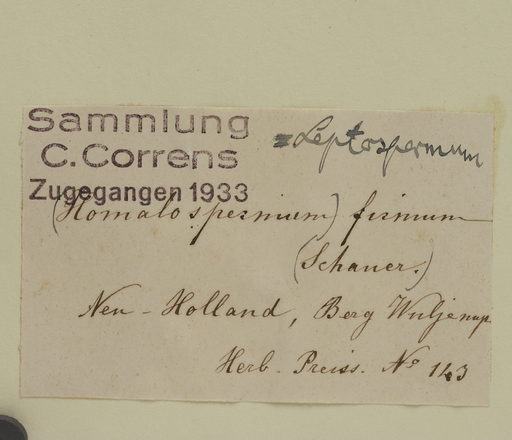 Sammlung
C. Correns
Zugegangen 1933
= Leptospermum
(Homalospermum) firmum
(Schauer.)
Neu-Holland, Berg Wuljenup
Herb. Preiss. No 143